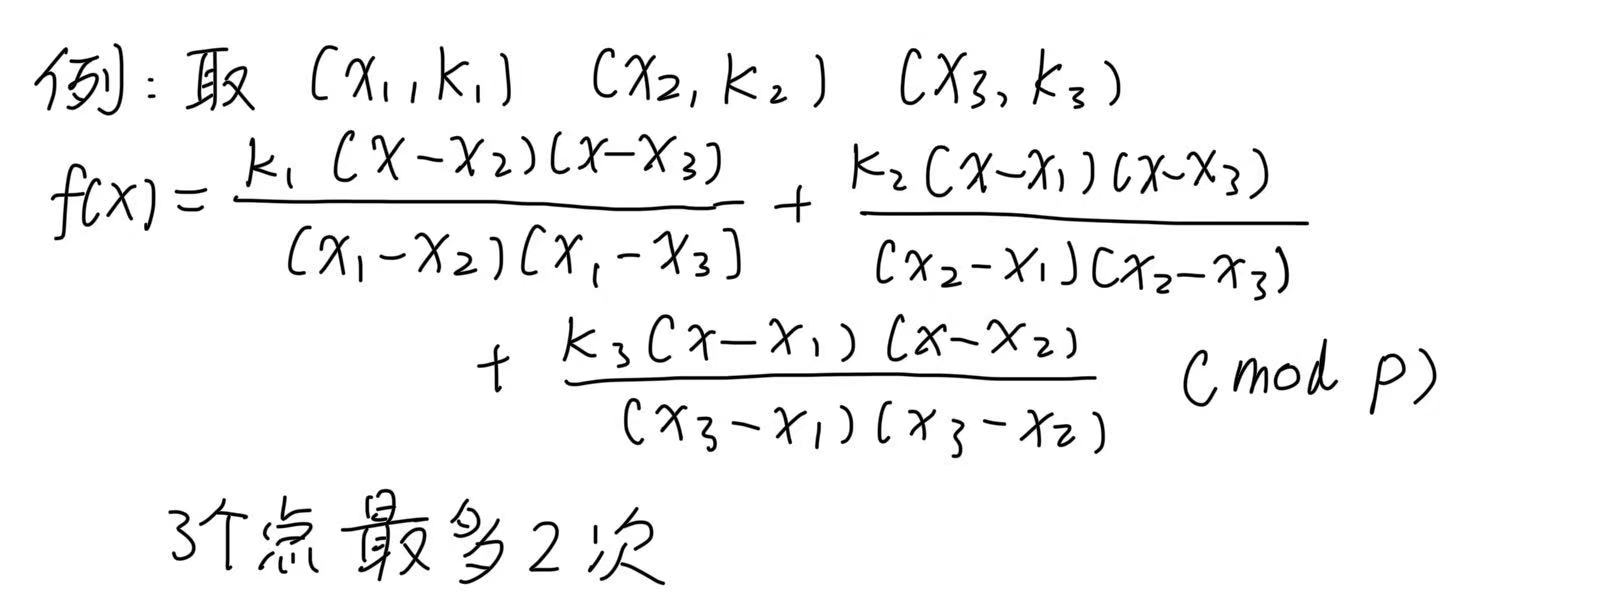 例: 取 (x₁, k₁) (x₂, k₂) (x₃, k₃)
f(x) = k₁(x-x₂)(x-x₃) / (x₁-x₂)(x₁-x₃) + k₂(x-x₁)(x-x₃) / (x₂-x₁)(x₂-x₃)
+ k₃(x-x₁)(x-x₂) / (x₃-x₁)(x₃-x₂) (mod p)
3个点最多2次